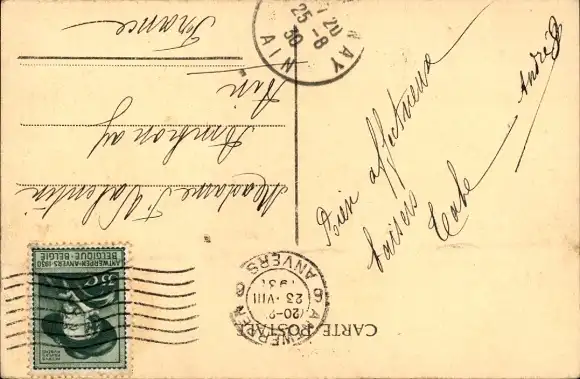 CARTE POSTALE
ANTWERPEN 6
20-2
23·VIII
193
6 ANVERS
35c
BELGIQUE-BELGIË
ANTWERPEN-ANVERS·1930
Madame Valentin
Ambronay
Ain
France
25-8
30
AIN
Bien affectueux
baisers
André